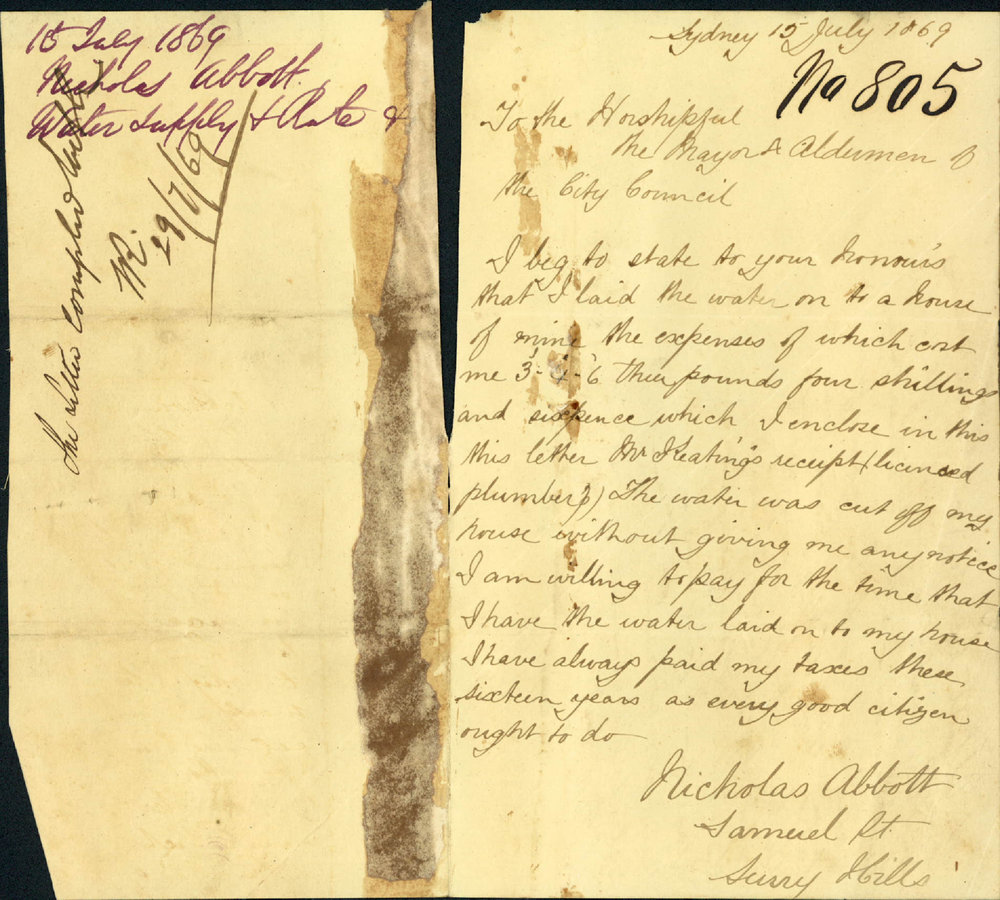 15 July 1869
Nicholas Abbott.
Water Supply & Rate &
the letter complied
WR.
29/7/69
Sydney 15 July 1869
No 805
To the Worshipful
the Mayor & Aldermen of
the City Council
I beg to state to your honours
that I laid the water on to a house
of mine the expenses of which cost
me 3-4-6 three pounds four shillings
and sixpence which I enclose in this
this letter Mr Keating's receipt (licensed
plumber's) The water was cut off my
house without giving me any notice
I am willing to pay for the time that
I have the water laid on to my house
I have always paid my taxes these
sixteen years as every good citizen
ought to do
Nicholas Abbott
Samuel St
Surry Hills